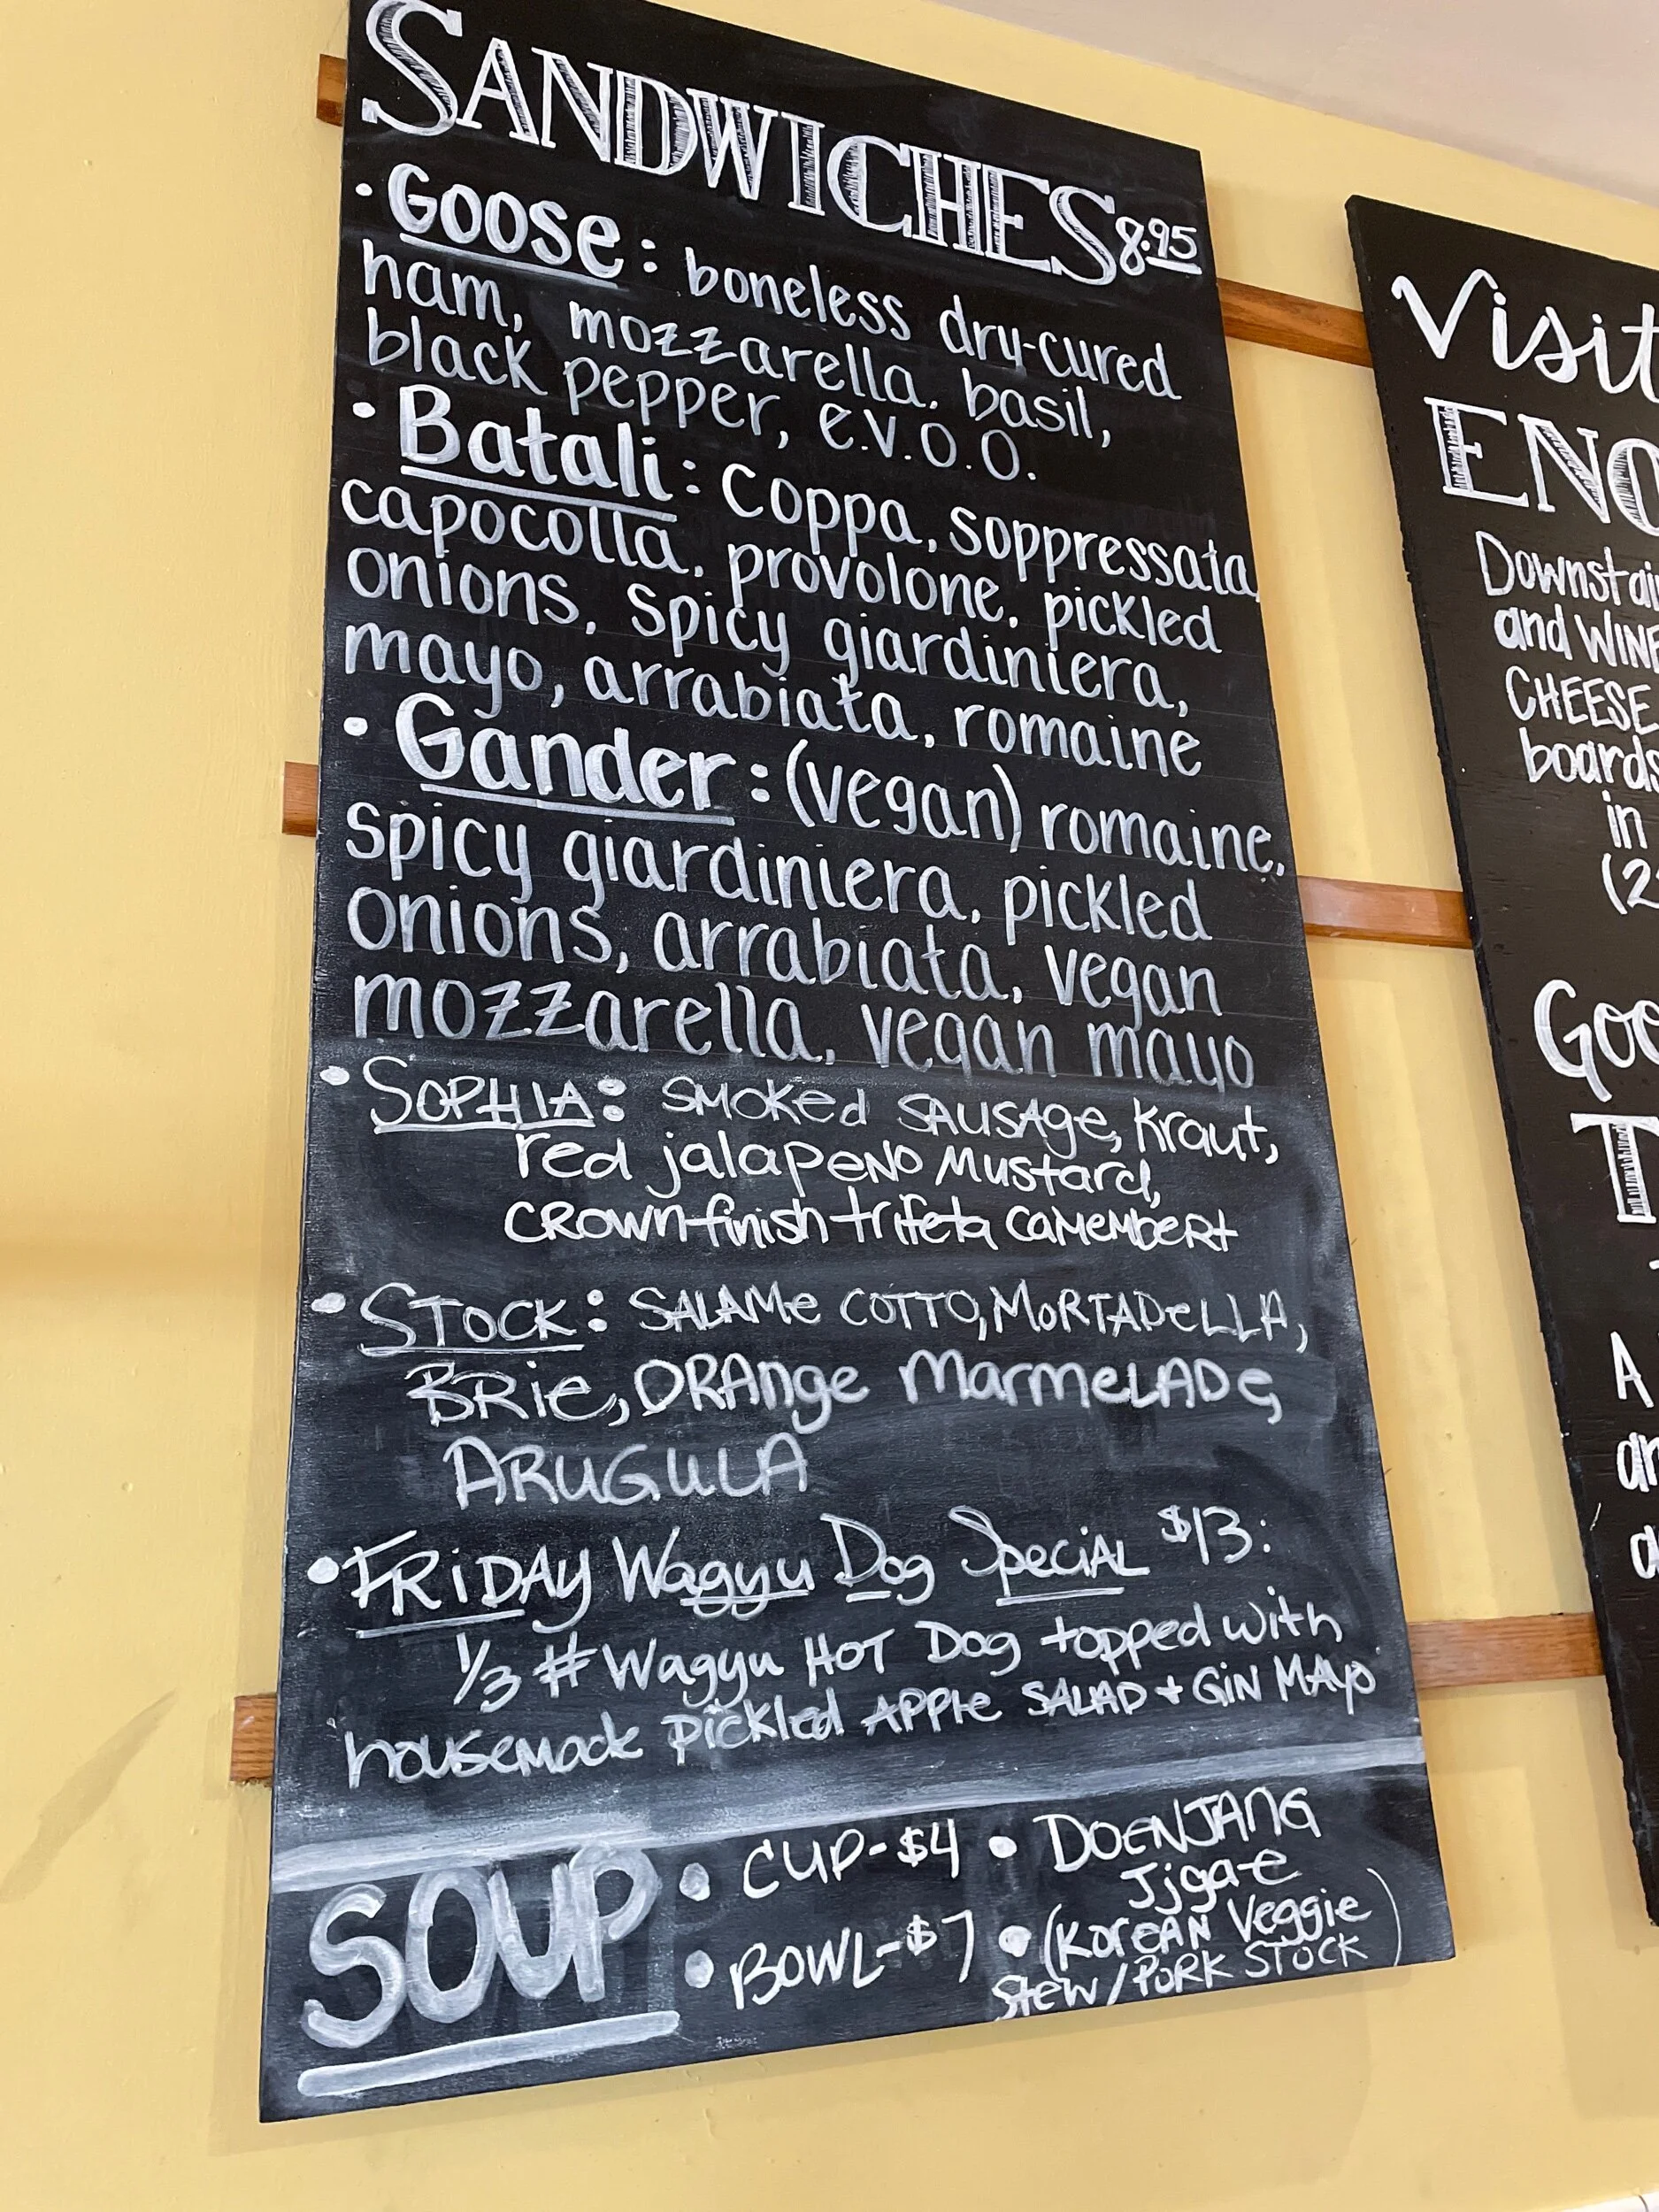 SANDWICHES 8.95
• Goose: boneless dry-cured
ham, mozzarella, basil,
black pepper, e.v.o.o.
• Batali: Coppa, soppressata,
capocolla, provolone, pickled
onions, spicy giardiniera,
mayo, arrabiata, romaine
• Gander: (vegan) romaine,
spicy giardiniera, pickled
onions, arrabiata, vegan
mozzarella, vegan mayo
• SOPHIA: SMOKed SAUSAge, Kraut,
red jalapeno Mustard,
CROWN finish trifeta CAMEMBERT
• STOCK: SALAMe COTTO, MORTADeLLA,
BRie, ORAnge MarmeLADe,
ARUGULA
• FRiDAy Wagyu Dog SpeciAL $13:
1/3 # Wagyu HOT Dog topped with
housemade pickled APPle SALAD + GiN MAyo
SOUP • CUP-$4 • DOENJANG
Jjgae
• BOWL-$7 • (KoreAN Veggie
Stew/PORK STOCK)
Visit
ENO
Downstai
and WINE
CHEESE
boards
in
(2
Goo
T
A
an
a